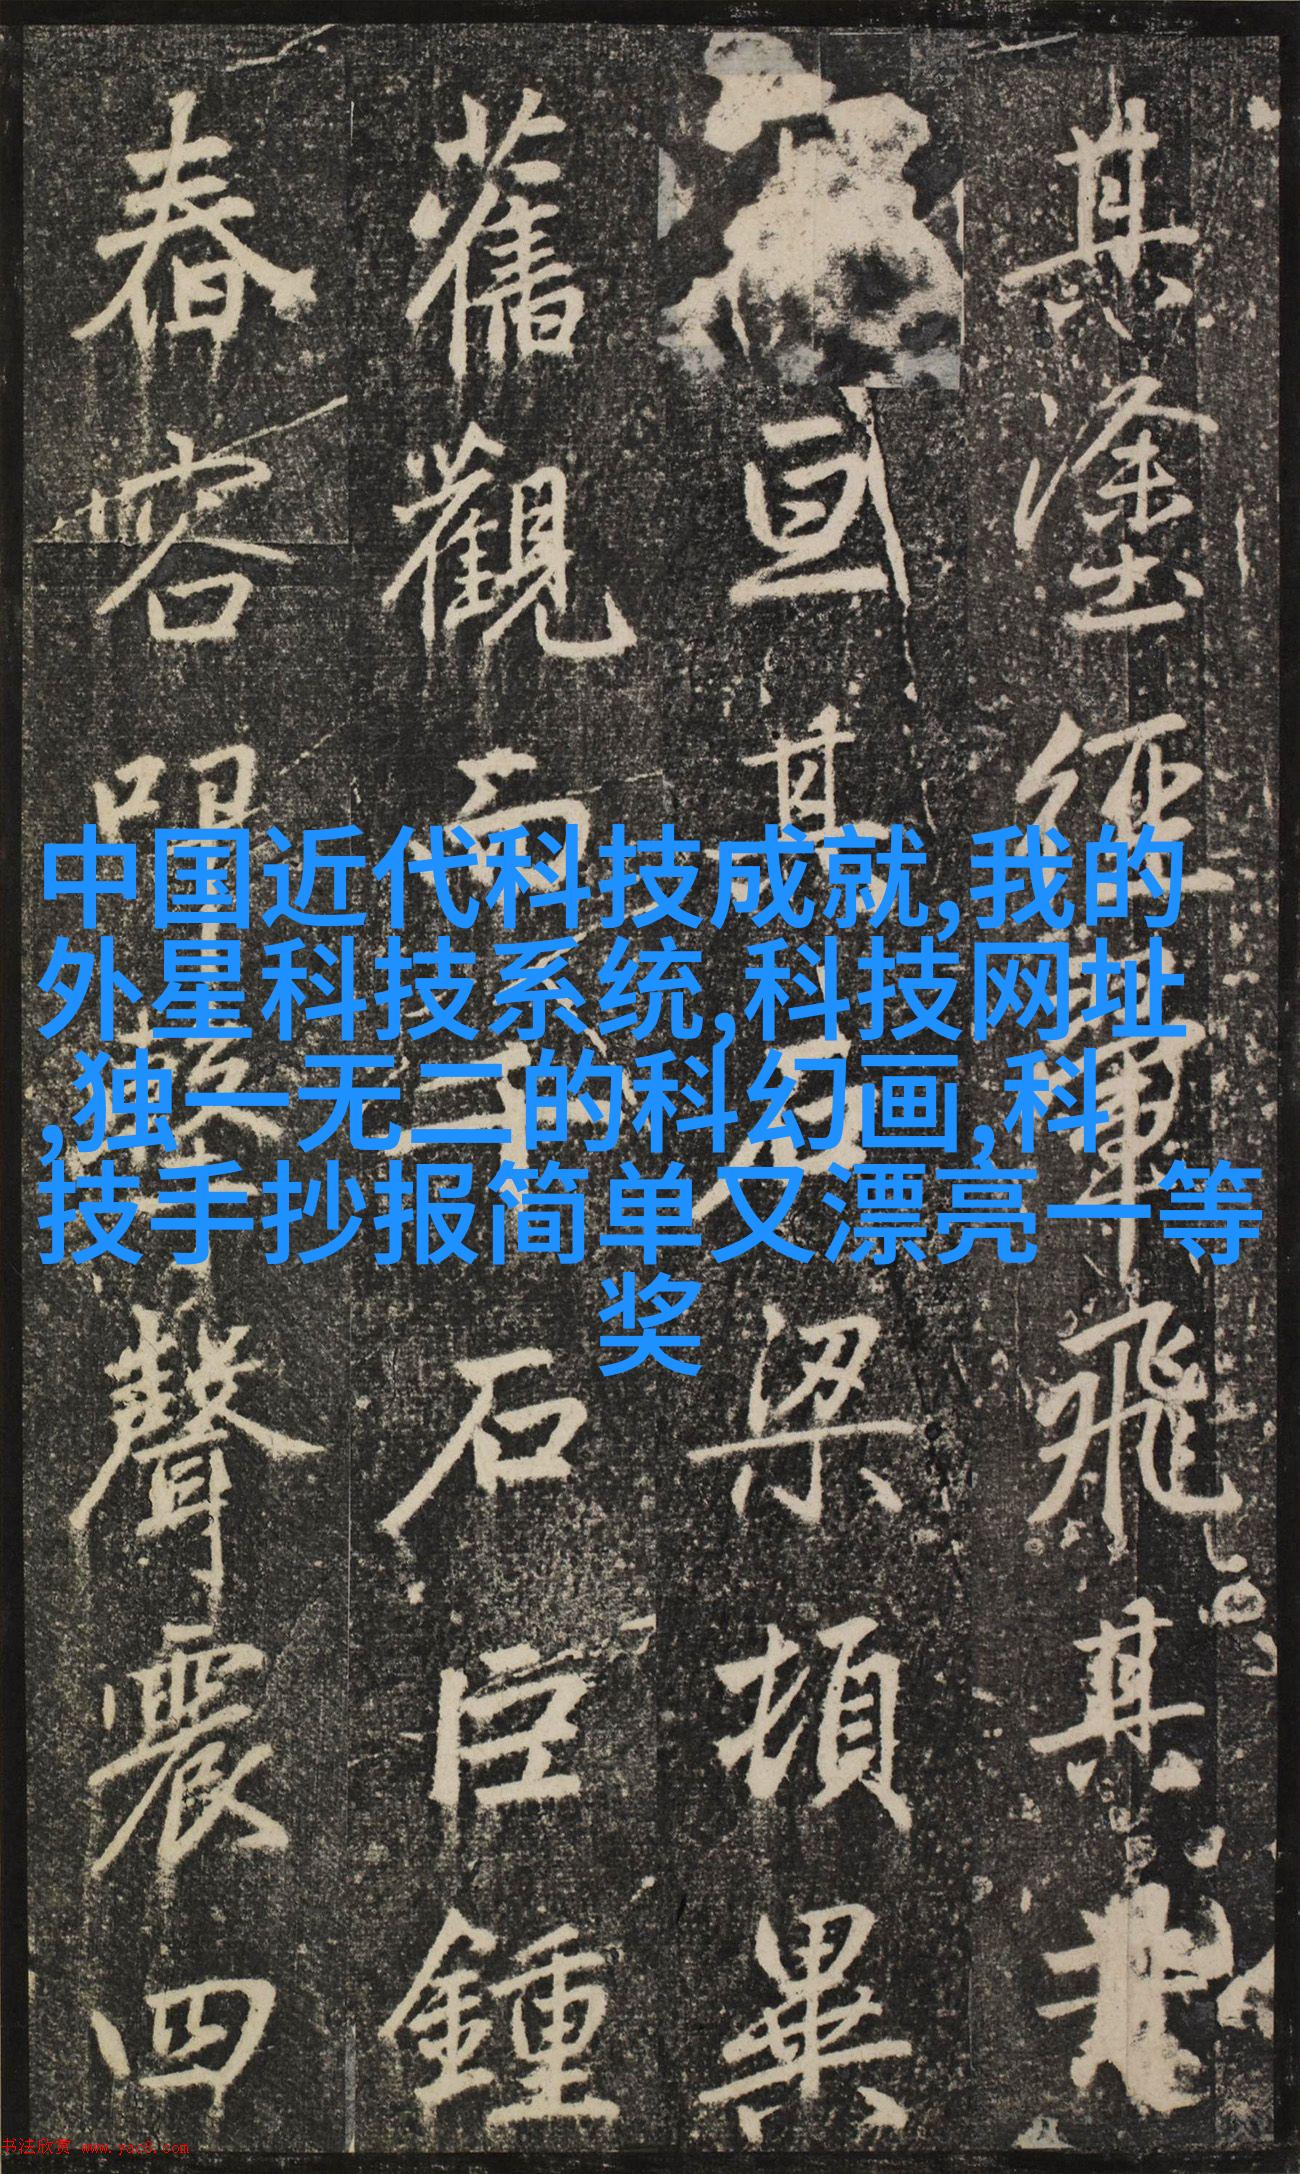 其塗經軍飛其
亘其石梁頓異
舊觀而石巨鍾
春容聲震四
中国近代科技成就,我的
外星科技系统,科技网址
,独一无二的科幻画,科
技手抄报简单又漂亮一等
奖
书法欣赏 www.yac8.com